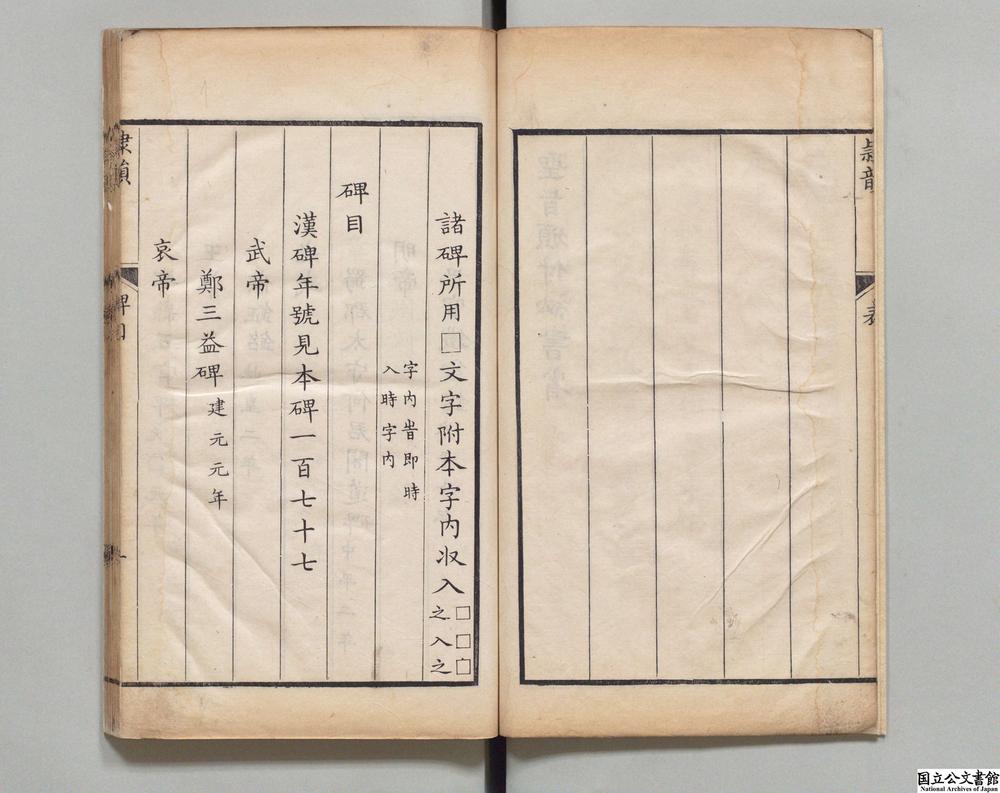 諸碑所用□文字附本字內収入□□□之入之
字內旹即時入時字內
碑目
漢碑年號見本碑一百七十七
武帝
鄭三益碑建元元年
哀帝
碑目
表
国立公文書館
National Archives of Japan